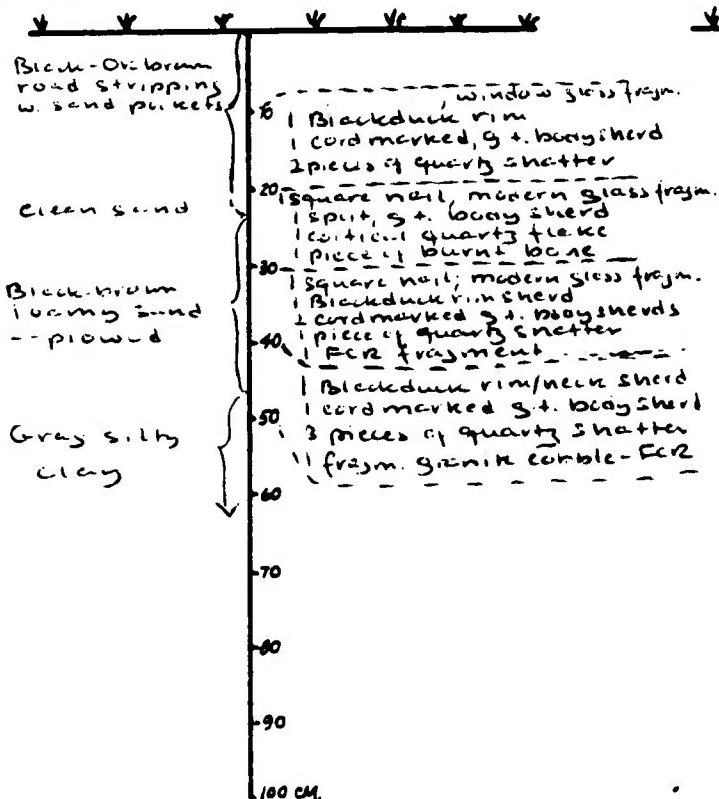 Black-Or. brown
road stripping
w. sand pockets
clean sand
Black-brown
loamy sand
-- plowed
Gray silty
clay
10
20
30
40
50
60
70
80
90
100 CM.
, window glass fragm.
1 Blackduck rim
1 cord marked, g.t. body sherd
2 pieces of quartz shatter
1 square nail, modern glass fragm.
1 split, g.t. body sherd
1 cortical quartz flake
1 piece of burnt bone
1 square nail; modern glass fragm.
1 Blackduck rim sherd
2 cord marked g.t. body sherds
1 piece of quartz shatter
1 FCR fragment
1 Blackduck rim/neck sherd
1 cord marked g.t. body sherd
3 pieces of quartz shatter
1 fragm. granite cobble-FCR